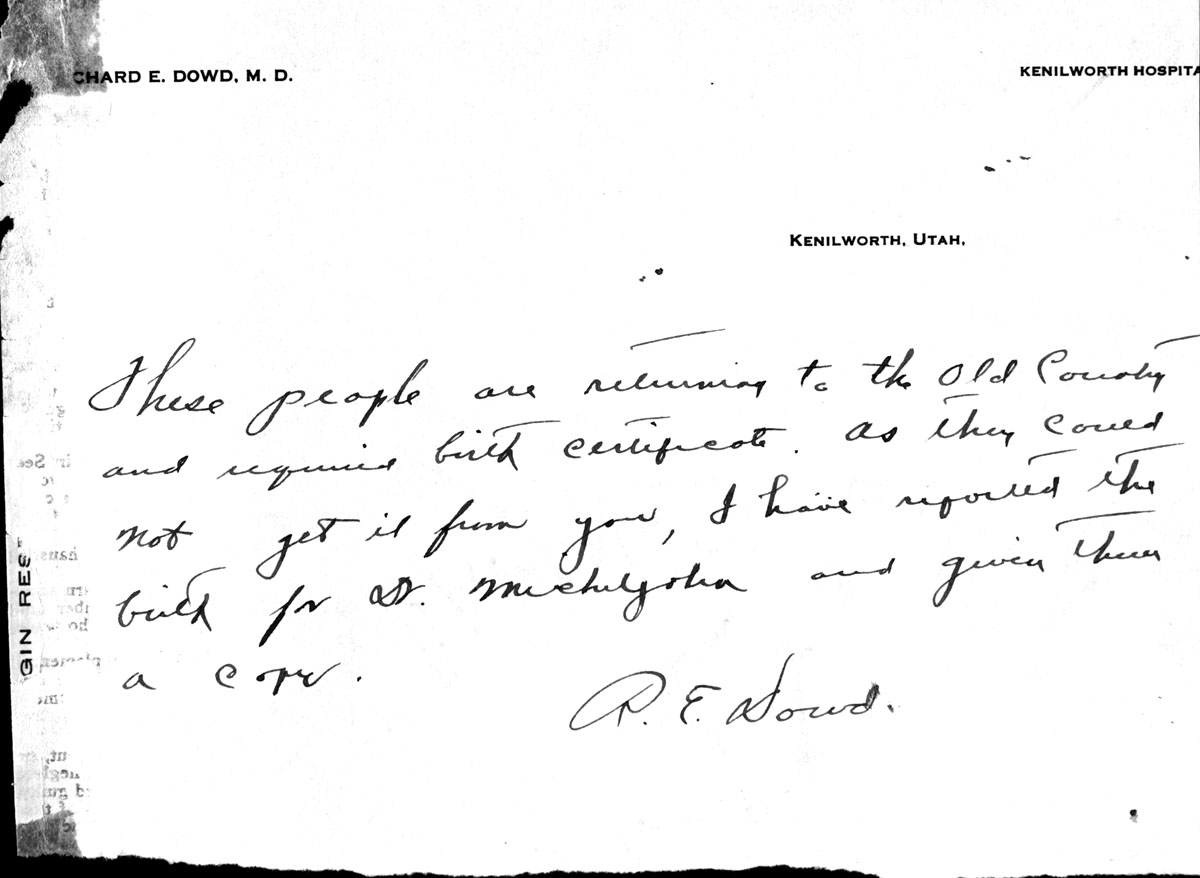 CHARD E. DOWD, M. D.
KENILWORTH HOSPITA
KENILWORTH, UTAH,
These people are returning to the Old Country
and required birth certificate. As they could
not get it from you, I have reported the
birth for Dr. and given them
a copy.
R. E. Dowd.
GIN RES